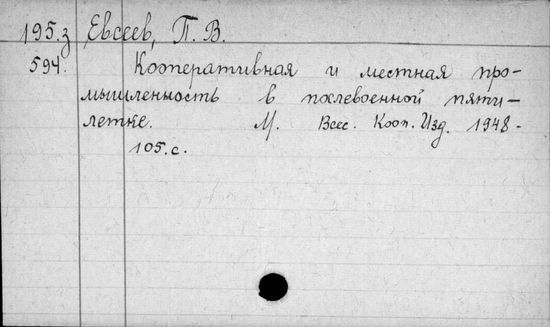 195.з Евсеев, П. В.
594. Кооперативная и местная про-
мышленность в послевоенной пяти-
летке. М. Всес. Кооп. Изд. 1948.
105. с.